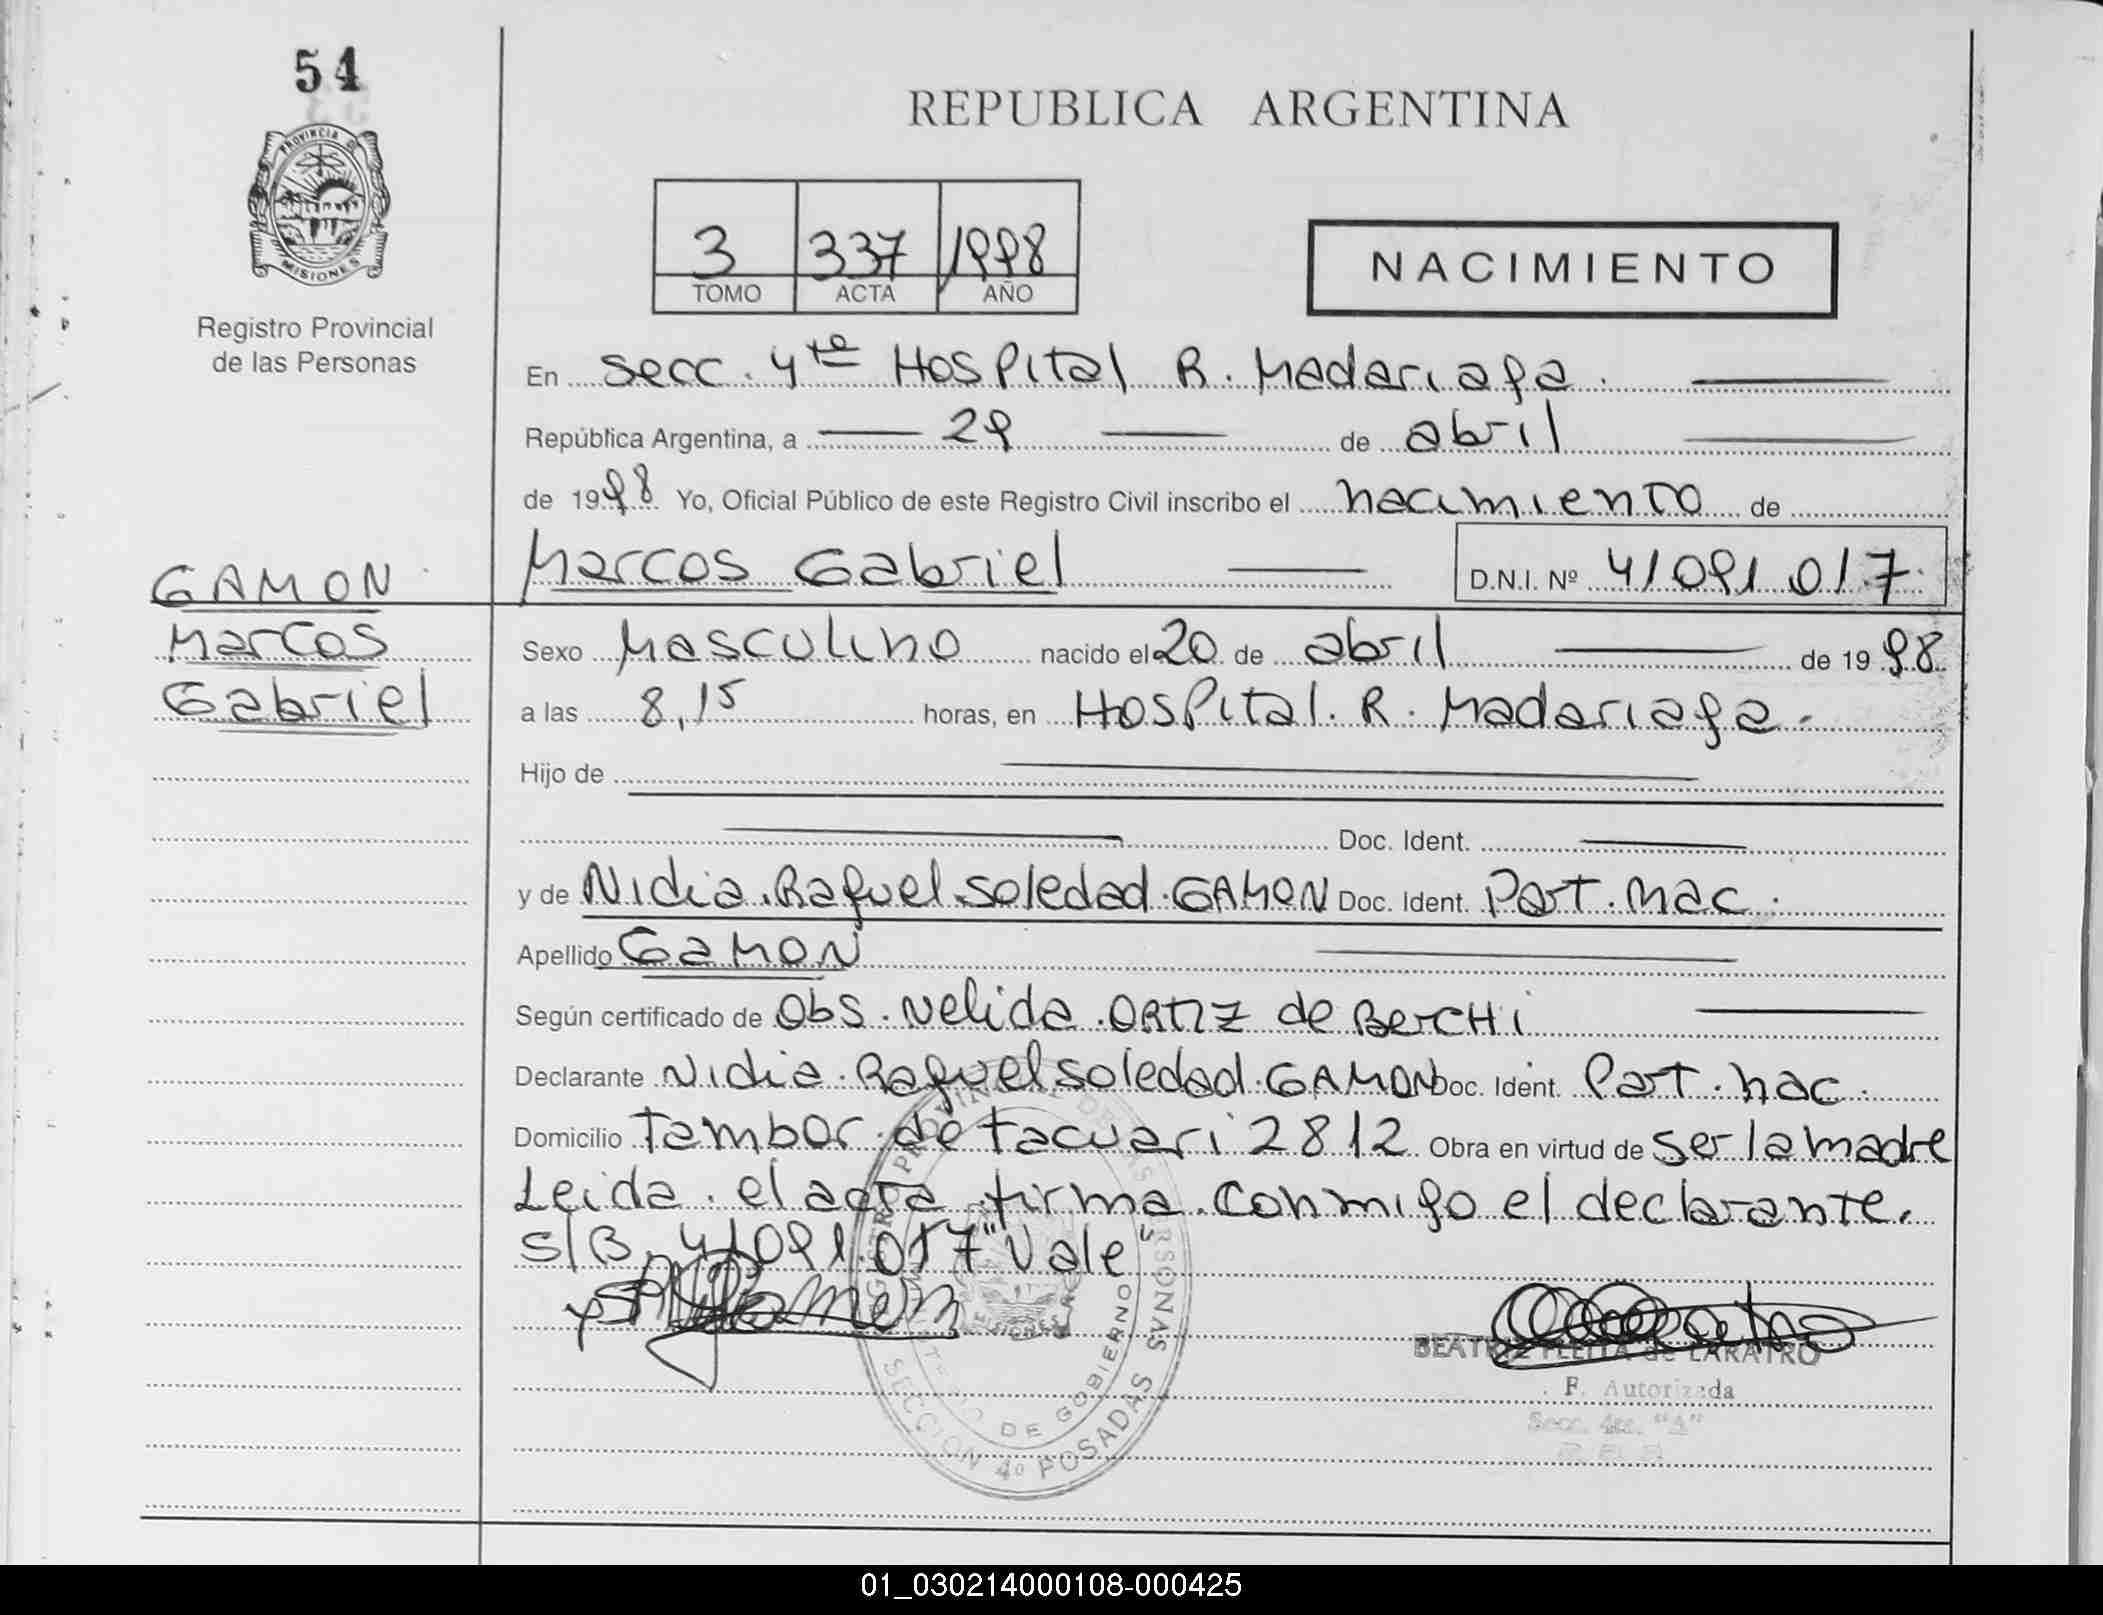 54
PROVINCIA DE
MISIONES
Registro Provincial
de las Personas
REPUBLICA ARGENTINA
3 337 1998
TOMO ACTA AÑO
NACIMIENTO
En Secc. 4ta Hospital R. Madariaga.
República Argentina, a 29 de abril
de 1998 Yo, Oficial Público de este Registro Civil inscribo el nacimiento de
Marcos Gabriel D.N.I. Nº 41091017.
GAMON
Marcos
Gabriel
Sexo Masculino nacido el 20 de abril de 1998
a las 8,15 horas, en Hospital. R. Madariaga.
Hijo de
Doc. Ident.
y de Nidia. Raquel. Soledad. GAMON Doc. Ident. Part. nac.
Apellido GAMON
Según certificado de Obs. Nelida. ORTIZ de BerCHi
Declarante Nidia. Raquel Soledad. GAMON Doc. Ident. Part. nac.
Domicilio Tambor. de tacuari 2812 Obra en virtud de ser la madre
Leida. el acta firma. conmigo el declarante.
S/B. 41091.017 "Vale"
BEATRIZ FLEITA de LARATRO
F. Autorizada
Secc. 4ta. "A"
REGISTRO PROVINCIAL DE LAS PERSONAS
MINISTERIO DE GOBIERNO
MISIONES
SECCION 4º POSADAS
01_030214000108-000425